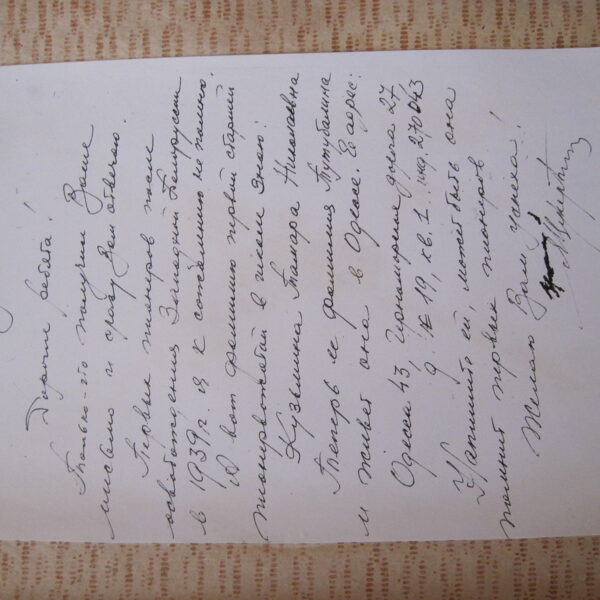 Дорогие ребята!
Только-что получил Ваше
письмо и сразу Вам отвечаю.
Первых пионеров после
освобождения Западной Белоруссии
в 1939 г. я к сожалению не помню.
А вот фамилию первой старшей
пионервожатой в школе знаю:
Кузьмина Тамара Николаевна
Теперь ее фамилия Тутубалина
и живет она в Одессе. Её адрес:
Одесса 43, Черноморская дорога 27
д. № 19, кв. 1. инд. 270043
Напишите ей, может быть она
помнит первых пионеров
Желаю Вам успеха!